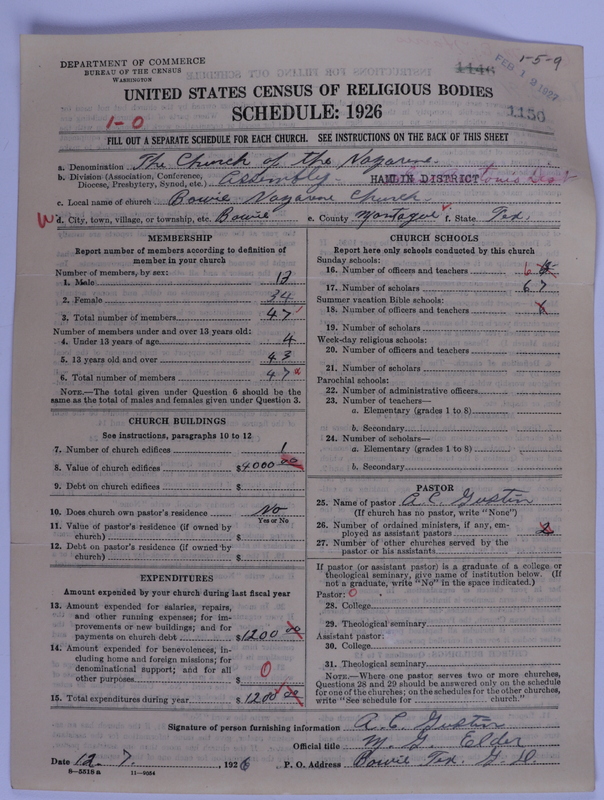 DEPARTMENT OF COMMERCE
BUREAU OF THE CENSUS
WASHINGTON
1146
FEB 12 1927
1-5-9
UNITED STATES CENSUS OF RELIGIOUS BODIES
SCHEDULE: 1926
1150
1-0
FILL OUT A SEPARATE SCHEDULE FOR EACH CHURCH. SEE INSTRUCTIONS ON THE BACK OF THIS SHEET
a. Denomination The Church of the Nazarene
b. Division (Association, Conference, Diocese, Presbytery, Synod, etc.) Assembly HAMLIN DISTRICT
c. Local name of church Bowie Nazarene Church
d. City, town, village, or township, etc. Bowie e. County Montague f. State Tex.
MEMBERSHIP
Report number of members according to definition of member in your church
Number of members, by sex:
1. Male 13
2. Female 34
3. Total number of members 47
Number of members under and over 13 years old:
4. Under 13 years of age 4
5. 13 years old and over 43
6. Total number of members 47
NOTE.—The total given under Question 6 should be the same as the total of males and females given under Question 3.
CHURCH BUILDINGS
See instructions, paragraphs 10 to 12
7. Number of church edifices 1
8. Value of church edifices $4000 00
9. Debt on church edifices $
10. Does church own pastor's residence? No
Yes or No
11. Value of pastor's residence (if owned by church) $
12. Debt on pastor's residence (if owned by church) $
EXPENDITURES
Amount expended by your church during last fiscal year
13. Amount expended for salaries, repairs, and other running expenses; for improvements or new buildings; and for payments on church debt $1200 00
14. Amount expended for benevolences, including home and foreign missions; for denominational support; and for all other purposes $ 0
15. Total expenditures during year $1200 00
CHURCH SCHOOLS
Report here only schools conducted by this church
Sunday schools:
16. Number of officers and teachers 6
17. Number of scholars 67
Summer vacation Bible schools:
18. Number of officers and teachers
19. Number of scholars
Week-day religious schools:
20. Number of officers and teachers
21. Number of scholars
Parochial schools:
22. Number of administrative officers
23. Number of teachers—
a. Elementary (grades 1 to 8)
b. Secondary
24. Number of scholars—
a. Elementary (grades 1 to 8)
b. Secondary
PASTOR
25. Name of pastor A. C. Gustin
(If church has no pastor, write "None")
26. Number of ordained ministers, if any, employed as assistant pastors 2
27. Number of other churches served by the pastor or his assistants
If pastor (or assistant pastor) is a graduate of a college or theological seminary, give name of institution below. (If not a graduate, write "No" in the space indicated.)
Pastor: 0
28. College
29. Theological seminary
Assistant pastor:
30. College
31. Theological seminary
NOTE.—Where one pastor serves two or more churches, Questions 28 and 29 should be answered only on the schedule for one of the churches; on the schedules for the other churches, write "See schedule for church."
Signature of person furnishing information A. C. Gustin
Official title M. G. Elder
Date 12 7, 1926 P. O. Address Bowie Tex. G. D.
8-5518 a 11-9054